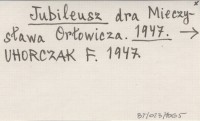 Jubileusz dra Mieczy-
sława Orłowicza. 1947. →
UHORCZAK F. 1947.